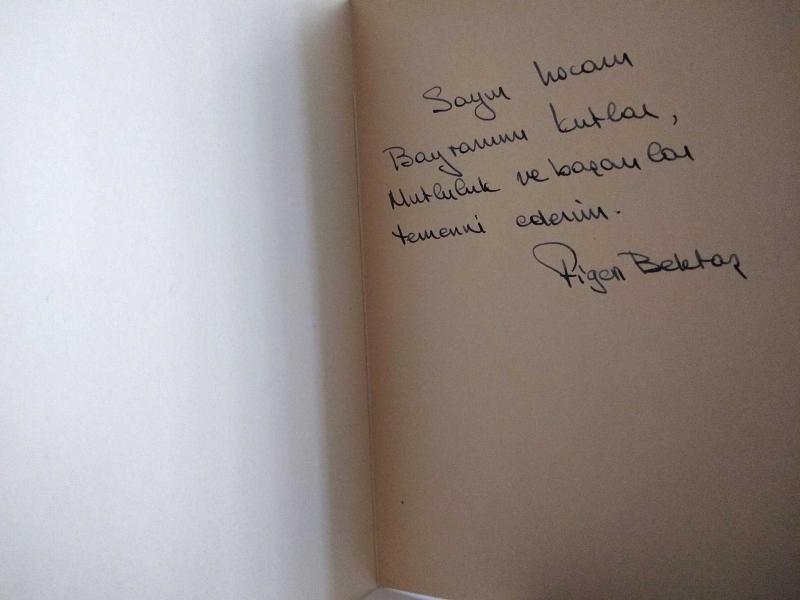 Sayın hocam
Bayramını kutlar,
Mutluluk ve başarılar
temenni ederim.
Figen Bektaş